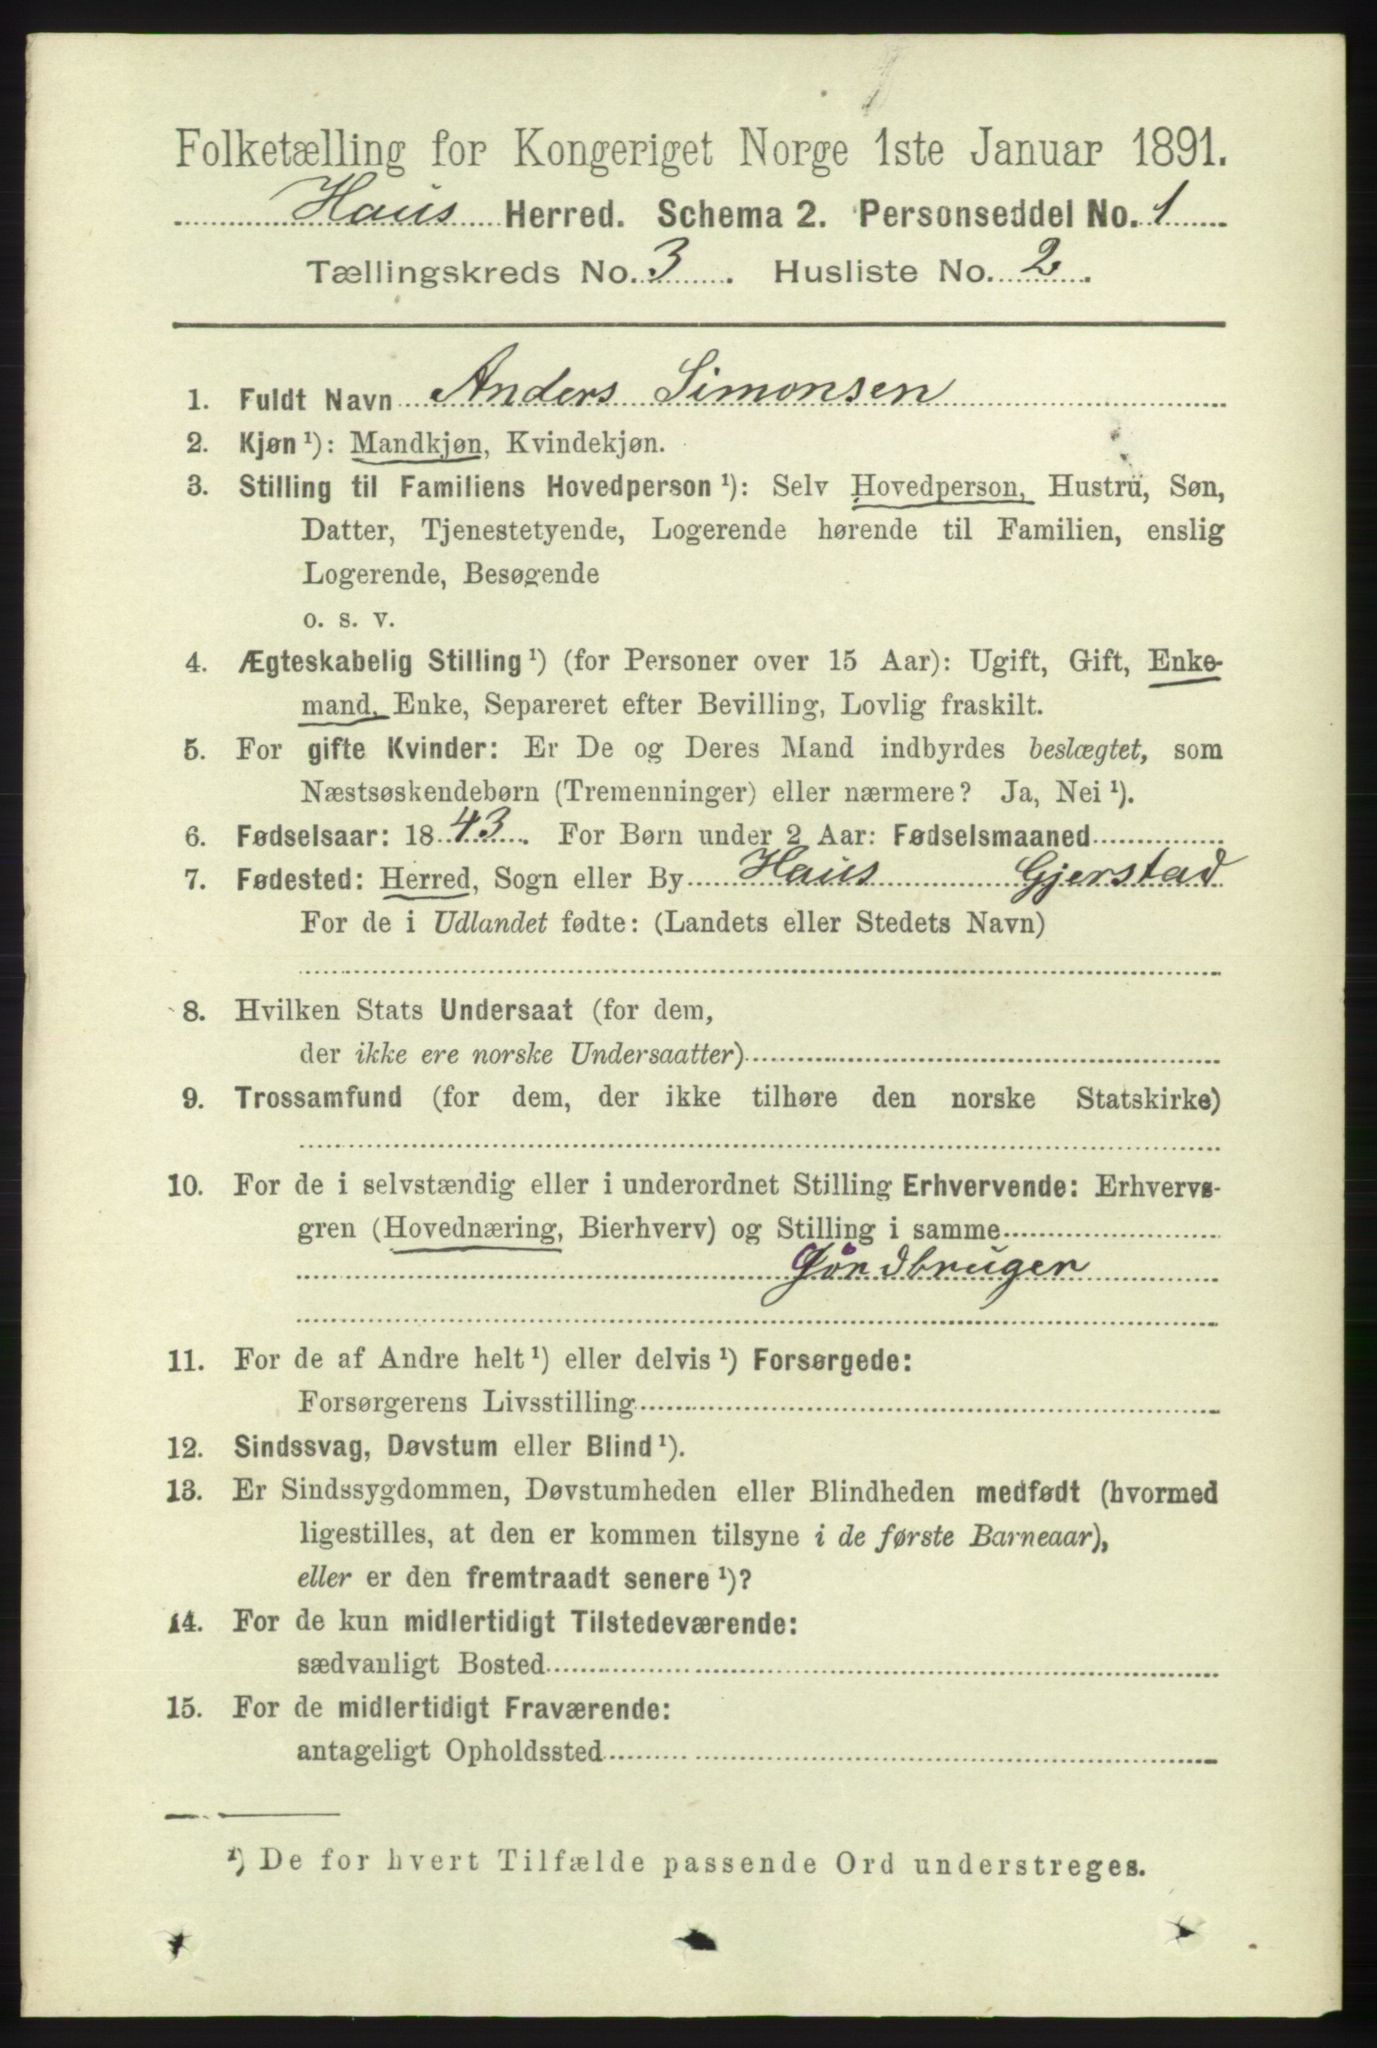 Folketælling for Kongeriget Norge 1ste Januar 1891.
Haus Herred. Schema 2. Personseddel No. 1
Tællingskreds No. 3. Husliste No. 2.
1. Fuldt Navn Anders Simonsen
2. Kjøn¹): Mandkjøn, Kvindekjøn.
3. Stilling til Familiens Hovedperson¹): Selv Hovedperson, Hustru, Søn,
Datter, Tjenestetyende, Logerende hørende til Familien, enslig
Logerende, Besøgende
o. s. v.
4. Ægteskabelig Stilling¹) (for Personer over 15 Aar): Ugift, Gift, Enke-
mand, Enke, Separeret efter Bevilling, Lovlig fraskilt.
5. For gifte Kvinder: Er De og Deres Mand indbyrdes beslægtet, som
Næstsøskendebørn (Tremenninger) eller nærmere? Ja, Nei¹).
6. Fødselsaar: 1843. For Børn under 2 Aar: Fødselsmaaned
7. Fødested: Herred, Sogn eller By Haus Gjerstad
For de i Udlandet fødte: (Landets eller Stedets Navn)
8. Hvilken Stats Undersaat (for dem,
der ikke ere norske Undersaatter)
9. Trossamfund (for dem, der ikke tilhøre den norske Statskirke)
10. For de i selvstændig eller i underordnet Stilling Erhvervende: Erhvervs-
gren (Hovednæring, Bierhverv) og Stilling i samme
Jordbruger
11. For de af Andre helt¹) eller delvis¹) Forsørgede:
Forsørgerens Livsstilling
12. Sindssvag, Døvstum eller Blind¹).
13. Er Sindssygdommen, Døvstumheden eller Blindheden medfødt (hvormed
ligestilles, at den er kommen tilsyne i de første Barneaar),
eller er den fremtraadt senere¹)?
14. For de kun midlertidigt Tilstedeværende:
sædvanligt Bosted
15. For de midlertidigt Fraværende:
antageligt Opholdssted
¹) De for hvert Tilfælde passende Ord understreges.